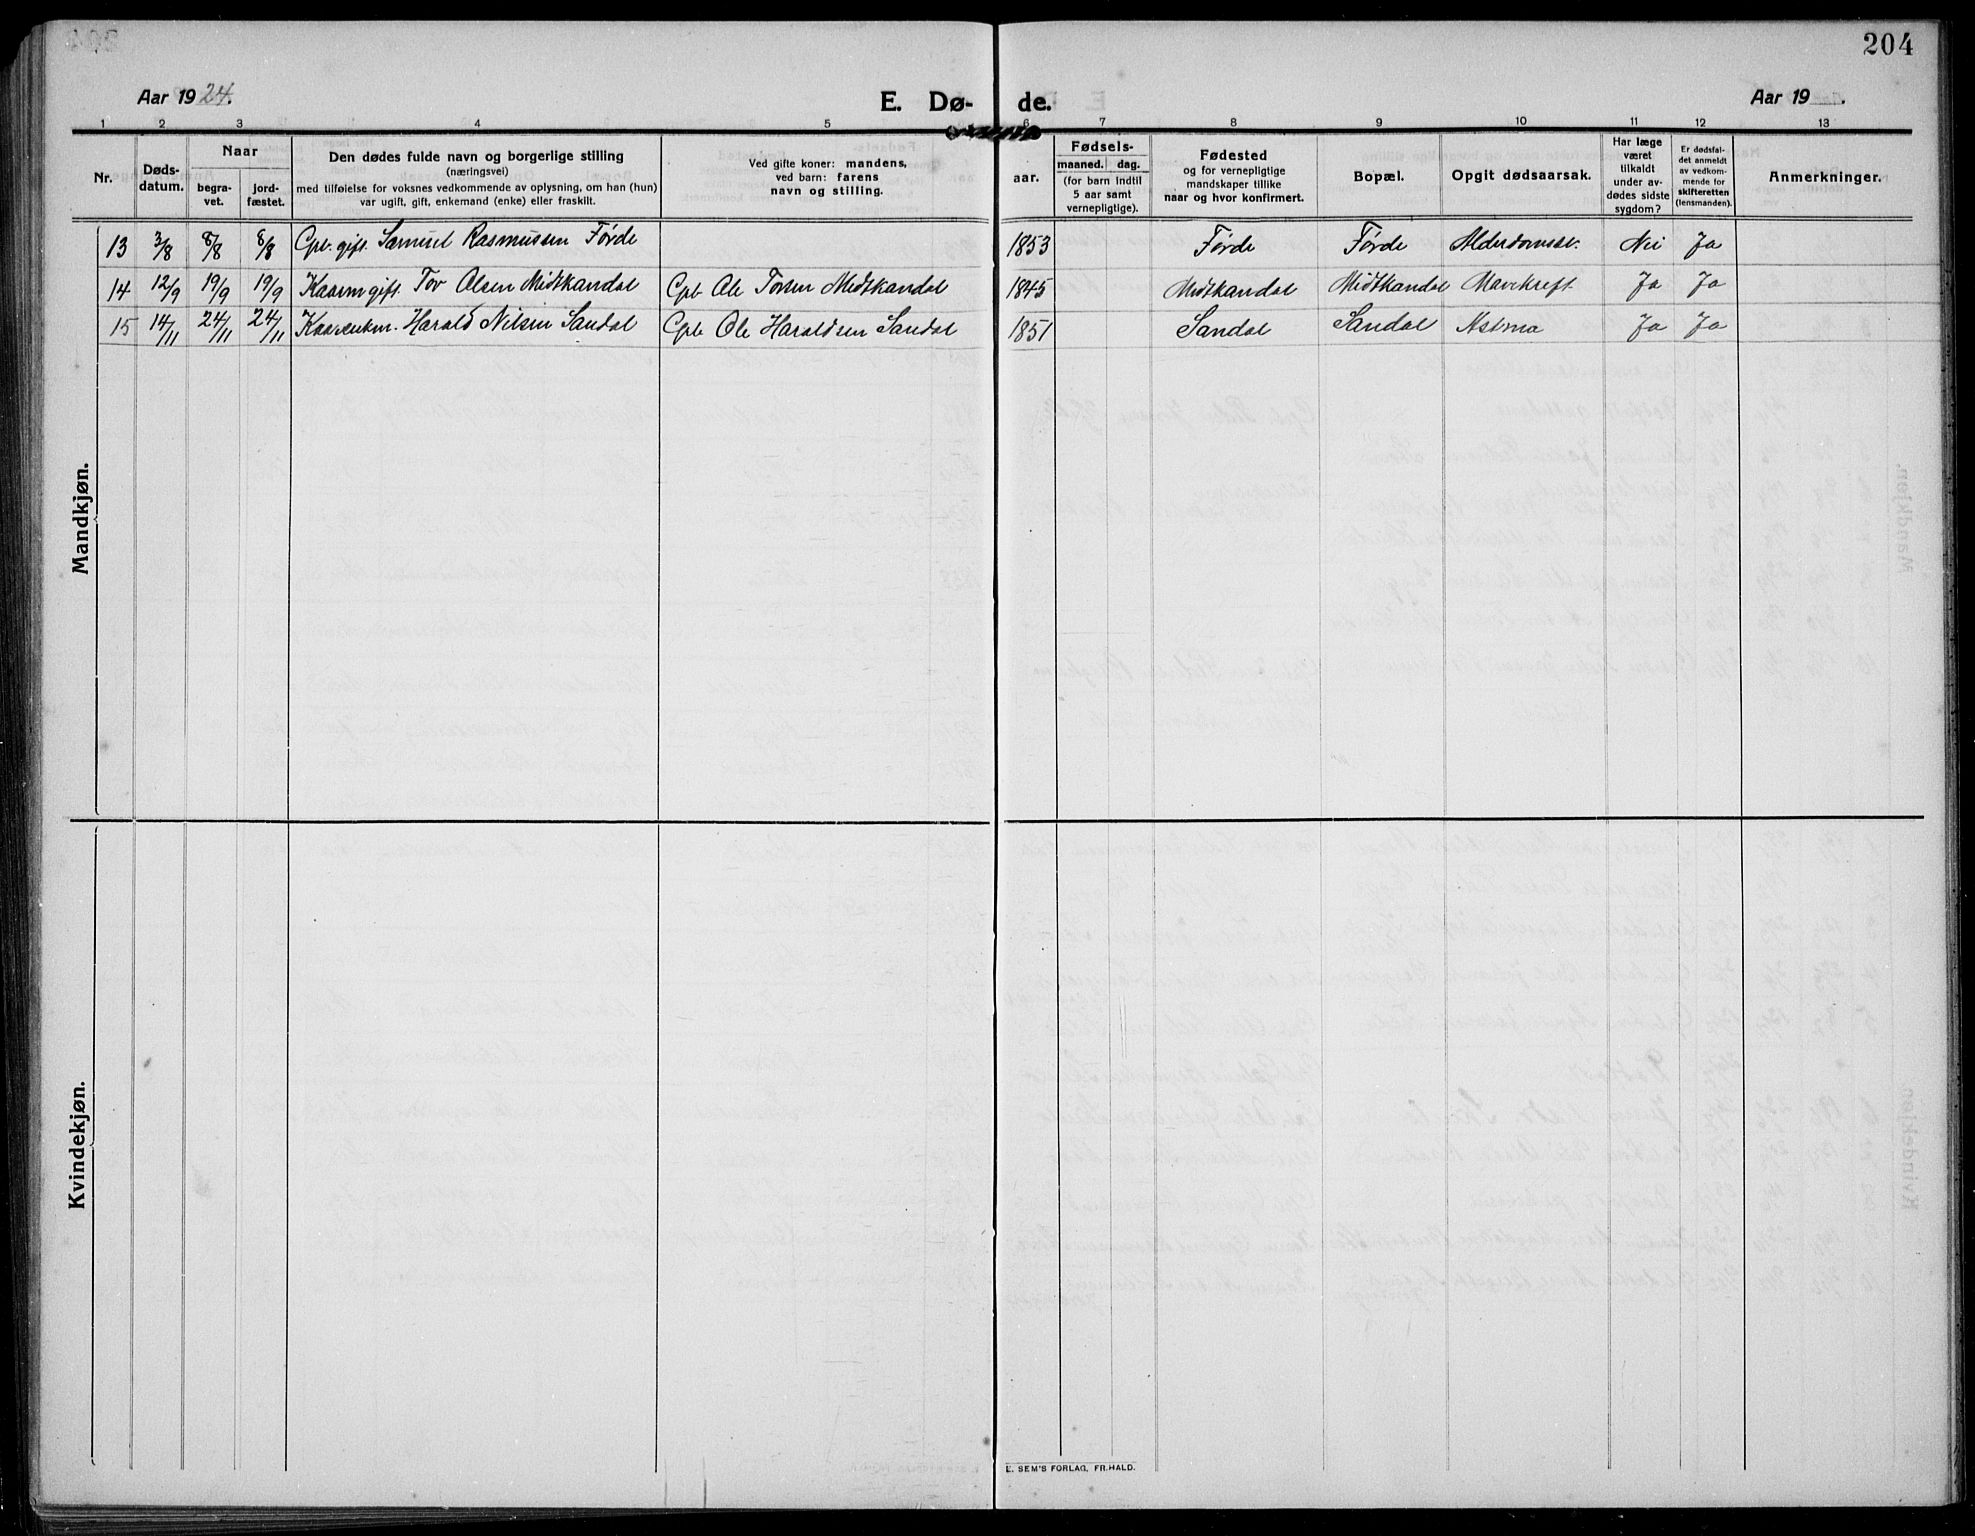 204
Aar 1924.
E. Dø- de.
Aar 19 .
1 2 3 4 5 6 7 8 9 10 11 12 13
Nr.
Døds-
datum.
Naar
begra-
vet.
jord-
fæstet.
Den dødes fulde navn og borgerlige stilling
(næringsvei)
med tilføielse for voksnes vedkommende av oplysning, om han (hun)
var ugift, gift, enkemand (enke) eller fraskilt.
Ved gifte koner: mandens,
ved barn: farens
navn og stilling.
Fødsels-
aar.
maaned. dag.
(for barn indtil
5 aar samt
vernepligtige).
Fødested
og for vernepligtige
mandskaper tillike
naar og hvor konfirmert.
Bopæl.
Opgit dødsaarsak.
Har læge
været
tilkaldt
under av-
dødes sidste
sygdom?
Er dødsfal-
det anmeldt
av vedkom-
mende for
skifteretten
(lensmanden).
Anmerkninger.
Mandkjøn.
13 3/8 8/8 8/8 Gpb. gift. Samuel Rasmussen Førde 1853 Førde Førde Alderdomssv. Nei Ja
14 12/9 19/9 19/9 Kaarm gift. Tov Olsen Midtkandal Gpb Ole Torsen Midtkandal 1845 Midtkandal Midtkandal Mavekreft Ja Ja
15 14/11 24/11 24/11 Kaarenkm. Harald Nilsen Sandal Gpb Ole Haraldsen Sandal 1851 Sandal Sandal Astma Ja Ja
Kvindekjøn.
E. SEM'S FORLAG, FR.HALD.